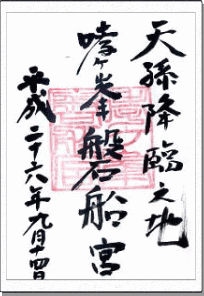 天孫降臨之地
哮ヶ峯 磐船宮
平成二十六年九月十四日